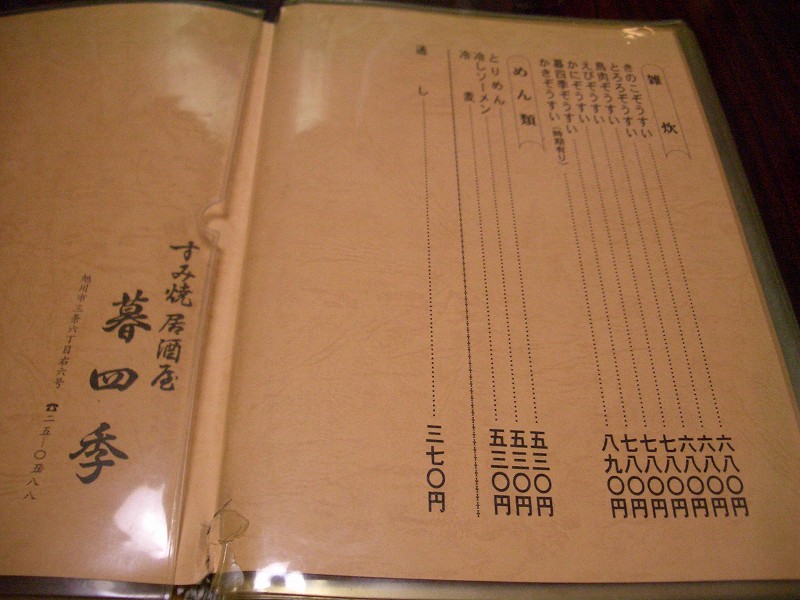 雑炊
きのこぞうすい 六八〇円
とろろぞうすい 六八〇円
鳥肉ぞうすい 六八〇円
えびぞうすい 七八〇円
かにぞうすい 七八〇円
暮四季ぞうすい 七八〇円
かきぞうすい（時期有り） 八九〇円
めん類
とりめん 五三〇円
冷しソーメン 五三〇円
冷麦 五三〇円
通し 三七〇円
すみ焼 居酒屋
暮四季
旭川市三条六丁目右六号
☎二五―〇五八八